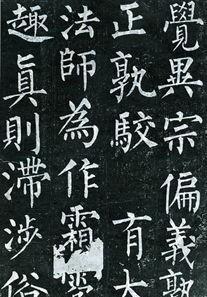 覺異宗偏義孰
正孰駮有大
法師為作霜
趣眞則滯涉俗